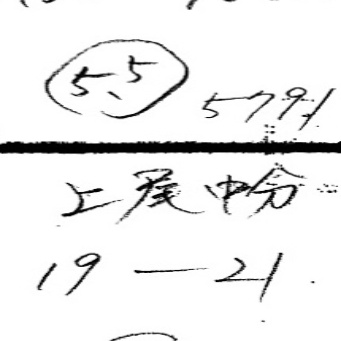 5.5
5791
上尾中分
19－21